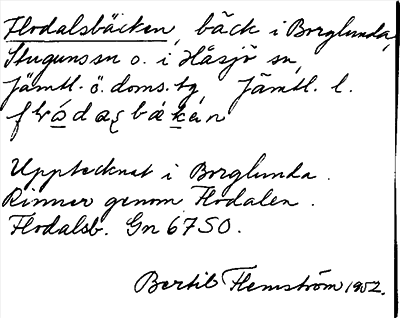 Flodalsbäcken, bäck i Borglunda,
Stuguns sn o. i Håsjö sn,
Jämtl. ö. doms.tg Jämtl. l.
Upptecknat i Borglunda.
Rinner genom Flodalen.
Flodalsb. Gn 67 SO.
Bertil Flemström 1952.